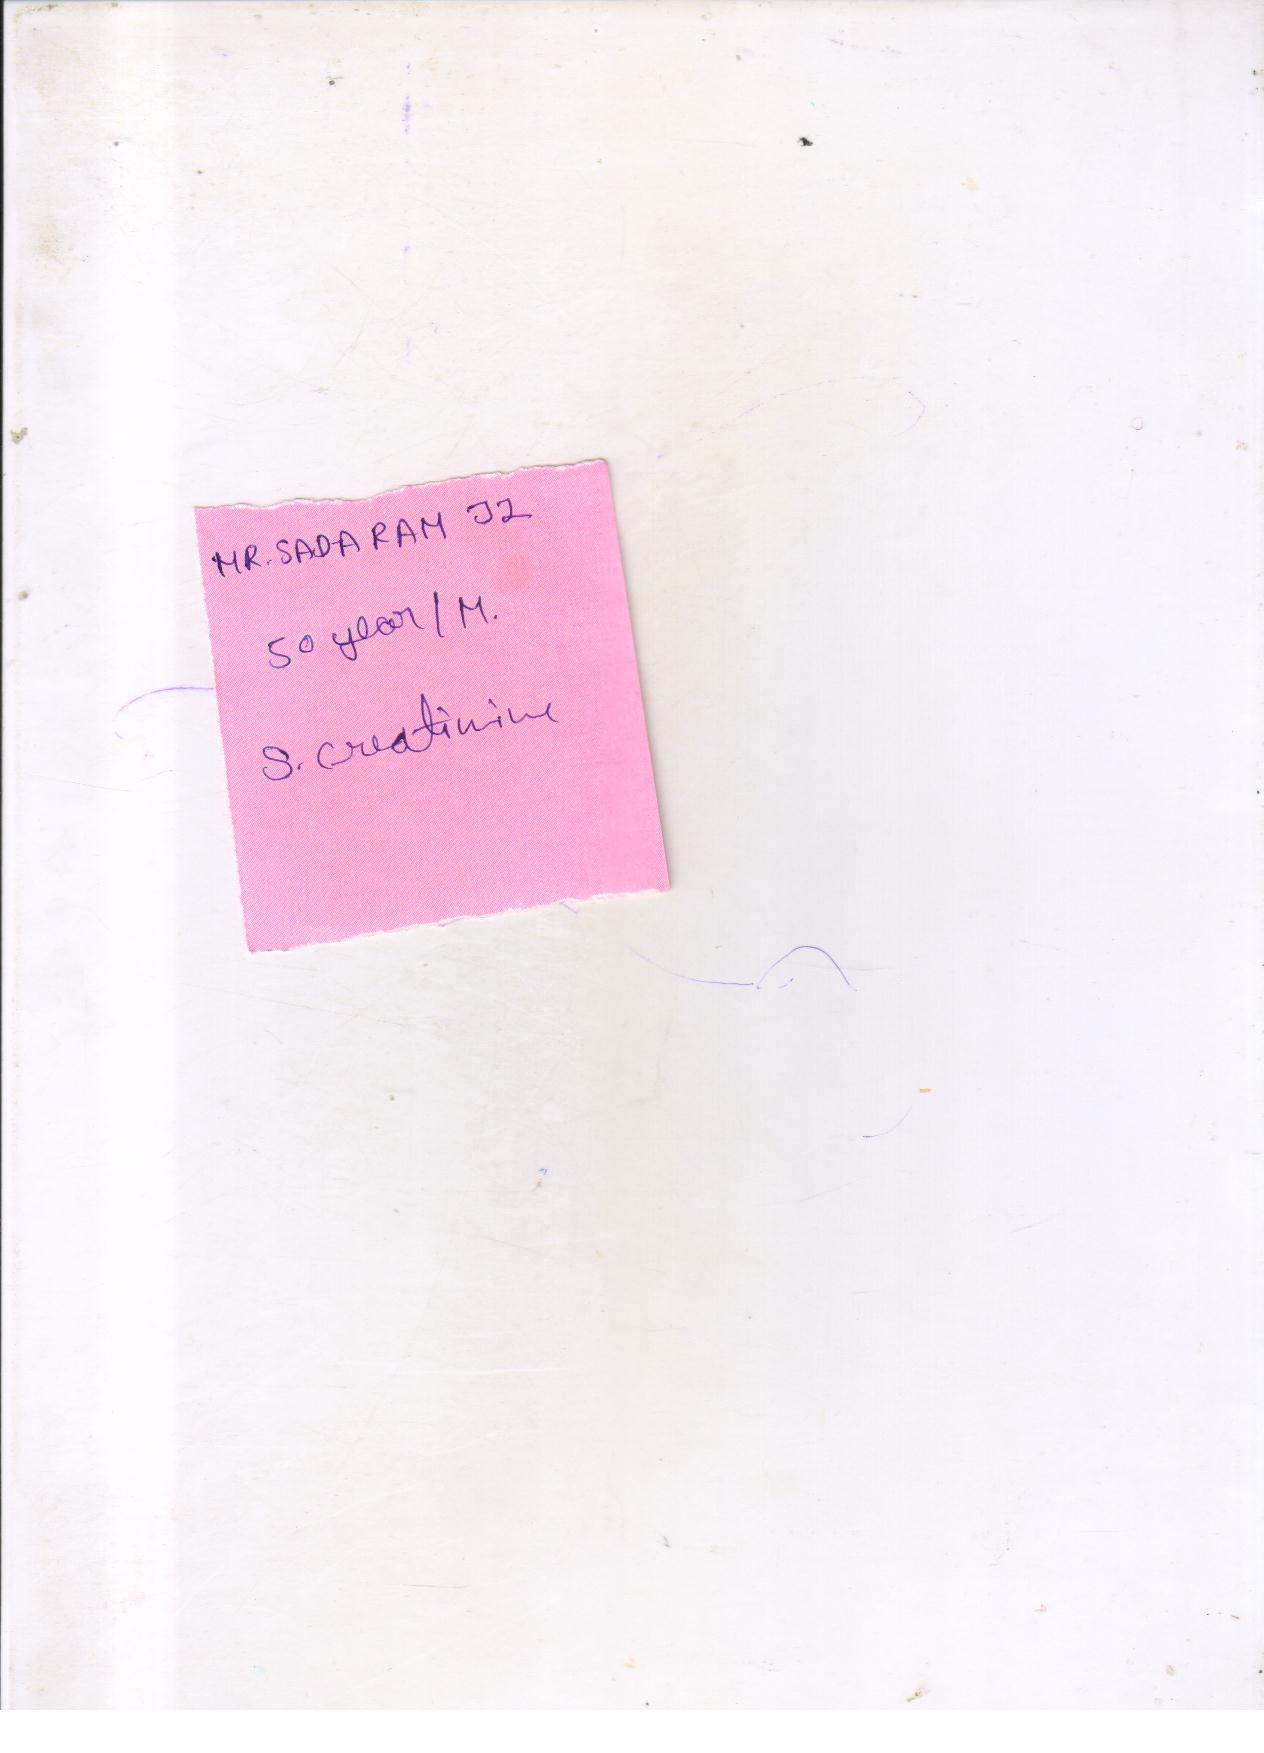 MR. SADA RAM JI
50 year/M.
S. creatinine